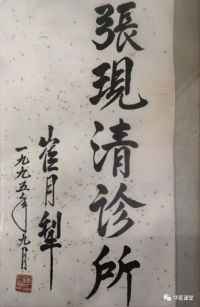 張現清诊所
崔月犁
一九九五年九月
华夏渔堂